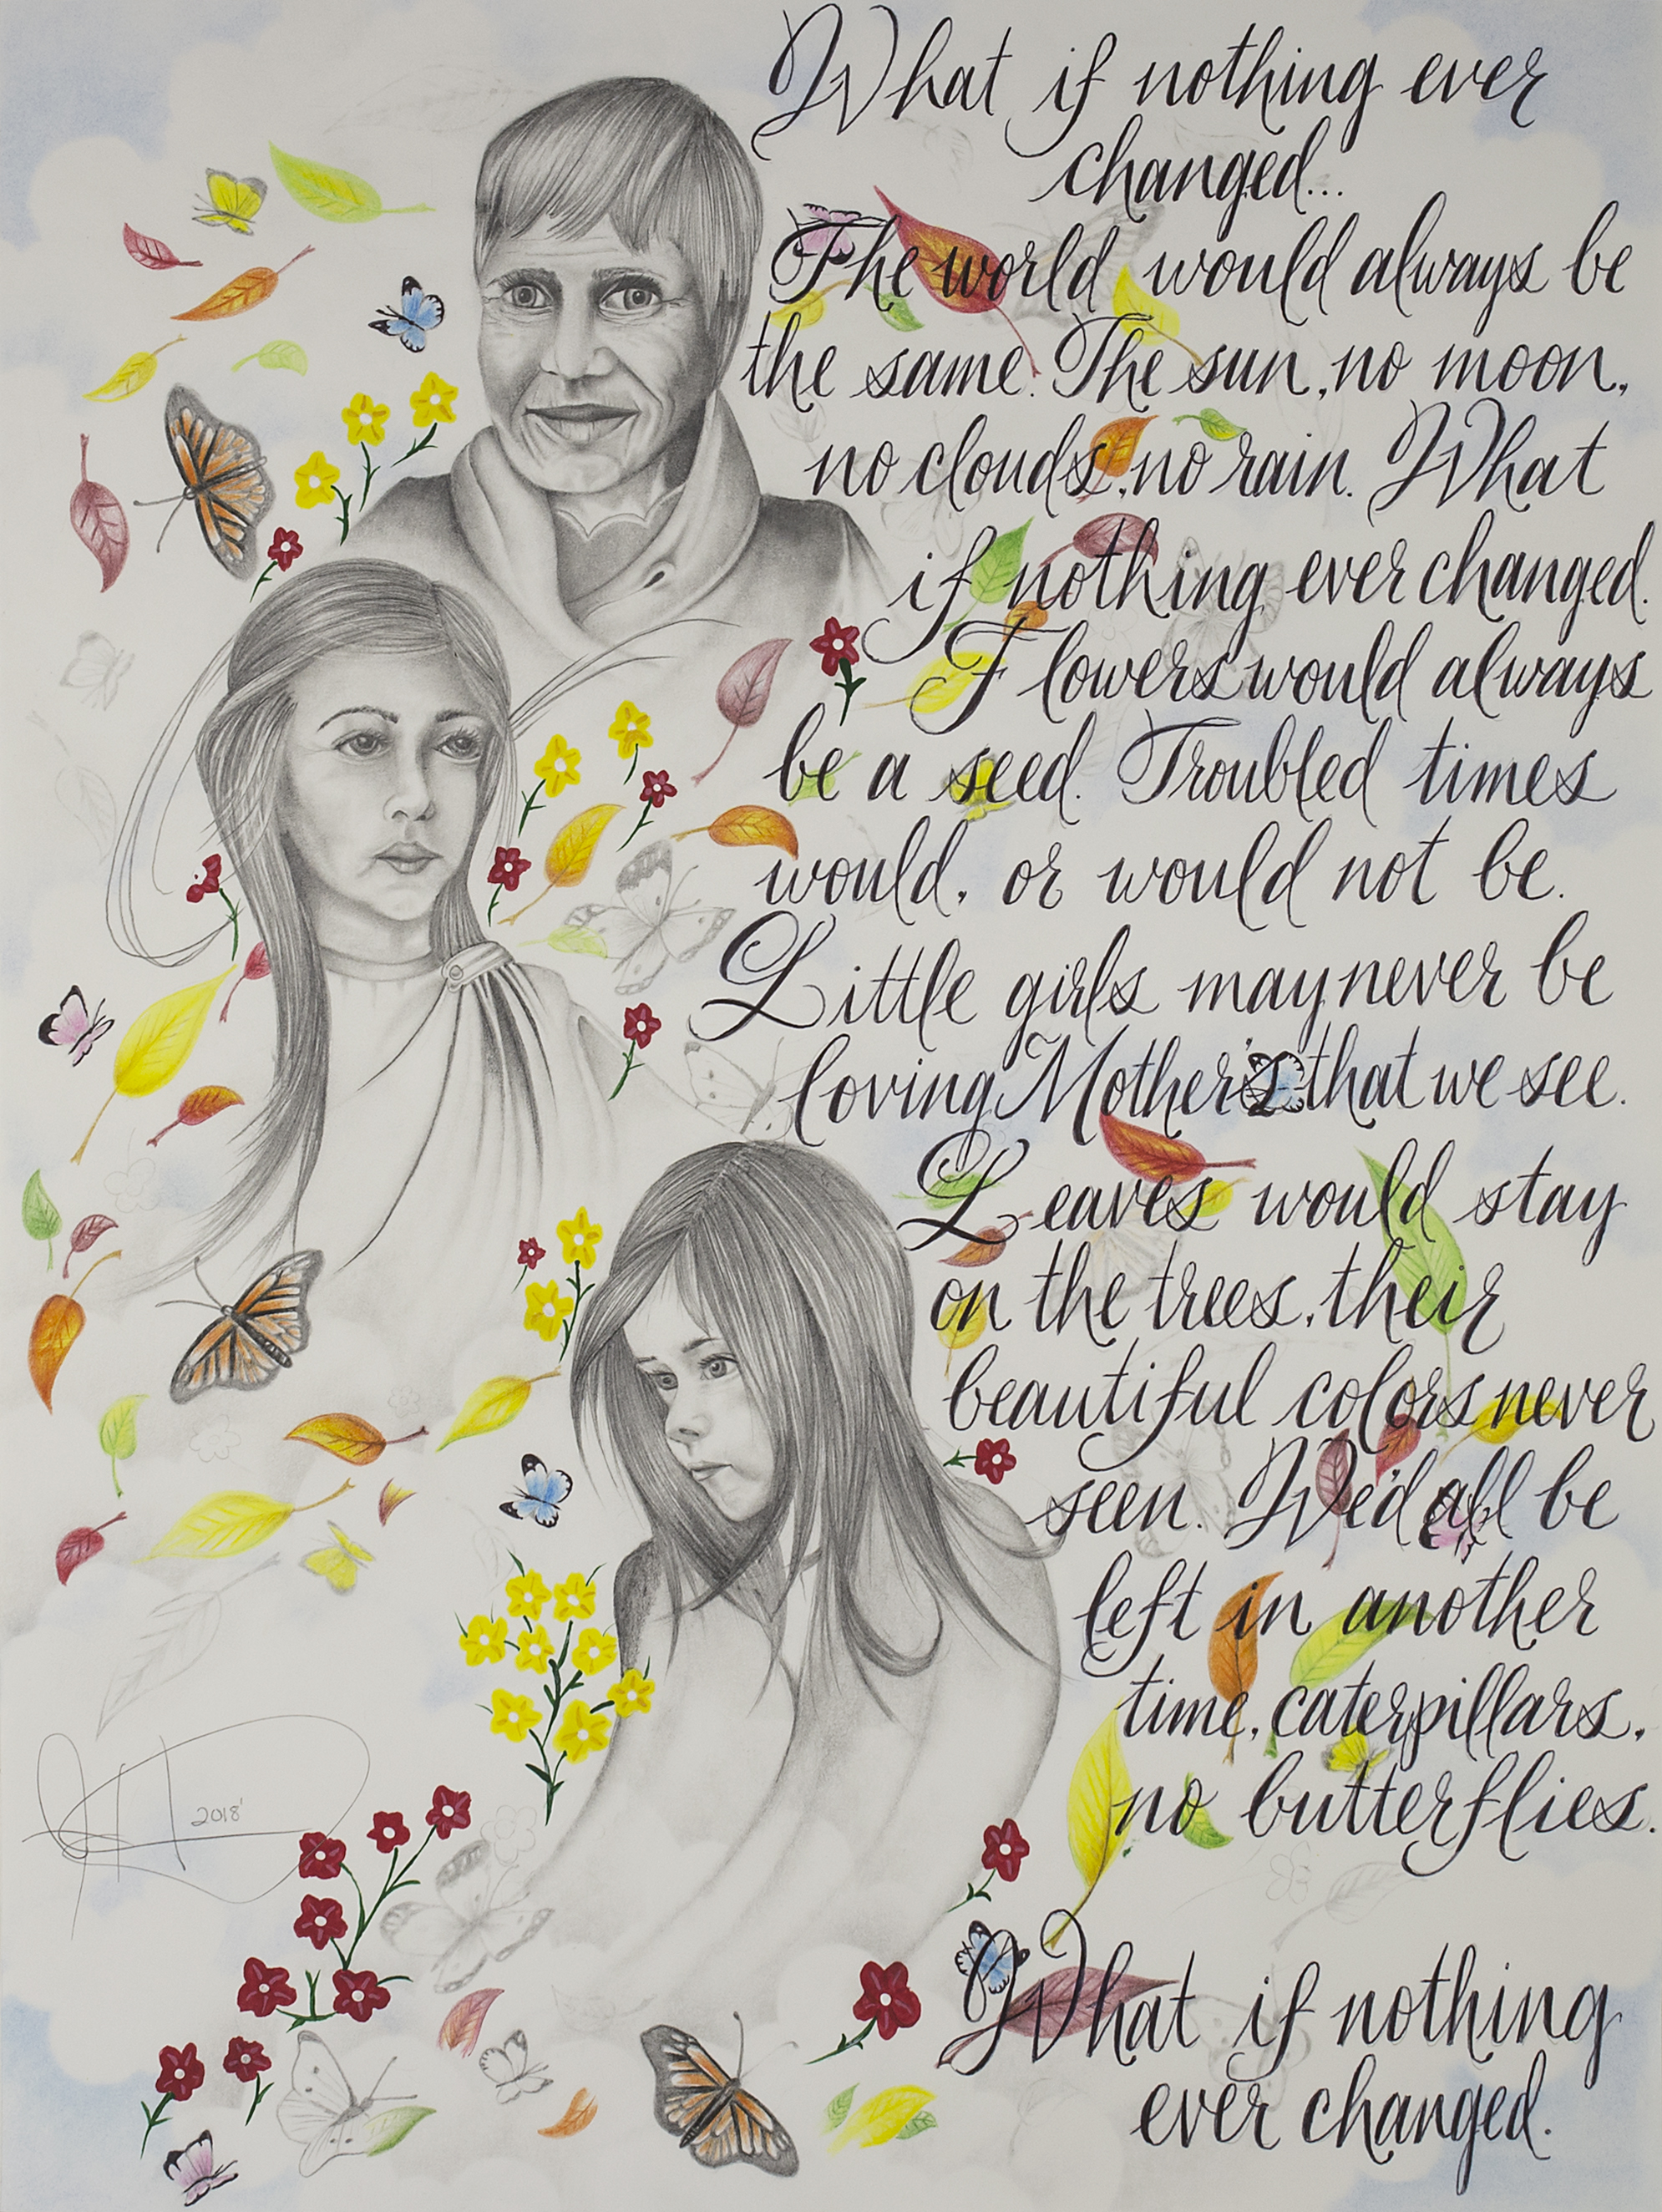 What if nothing ever
changed...
The world would always be
the same. The sun, no moon,
no clouds, no rain. What
if nothing ever changed.
Flowers would always
be a seed. Troubled times
would, or would not be.
Little girls may never be
loving Mother's that we see.
Leaves would stay
on the trees, their
beautiful colors never
seen. We'd all be
left in another
time, caterpillars,
no butterflies.
What if nothing
ever changed.
2018'